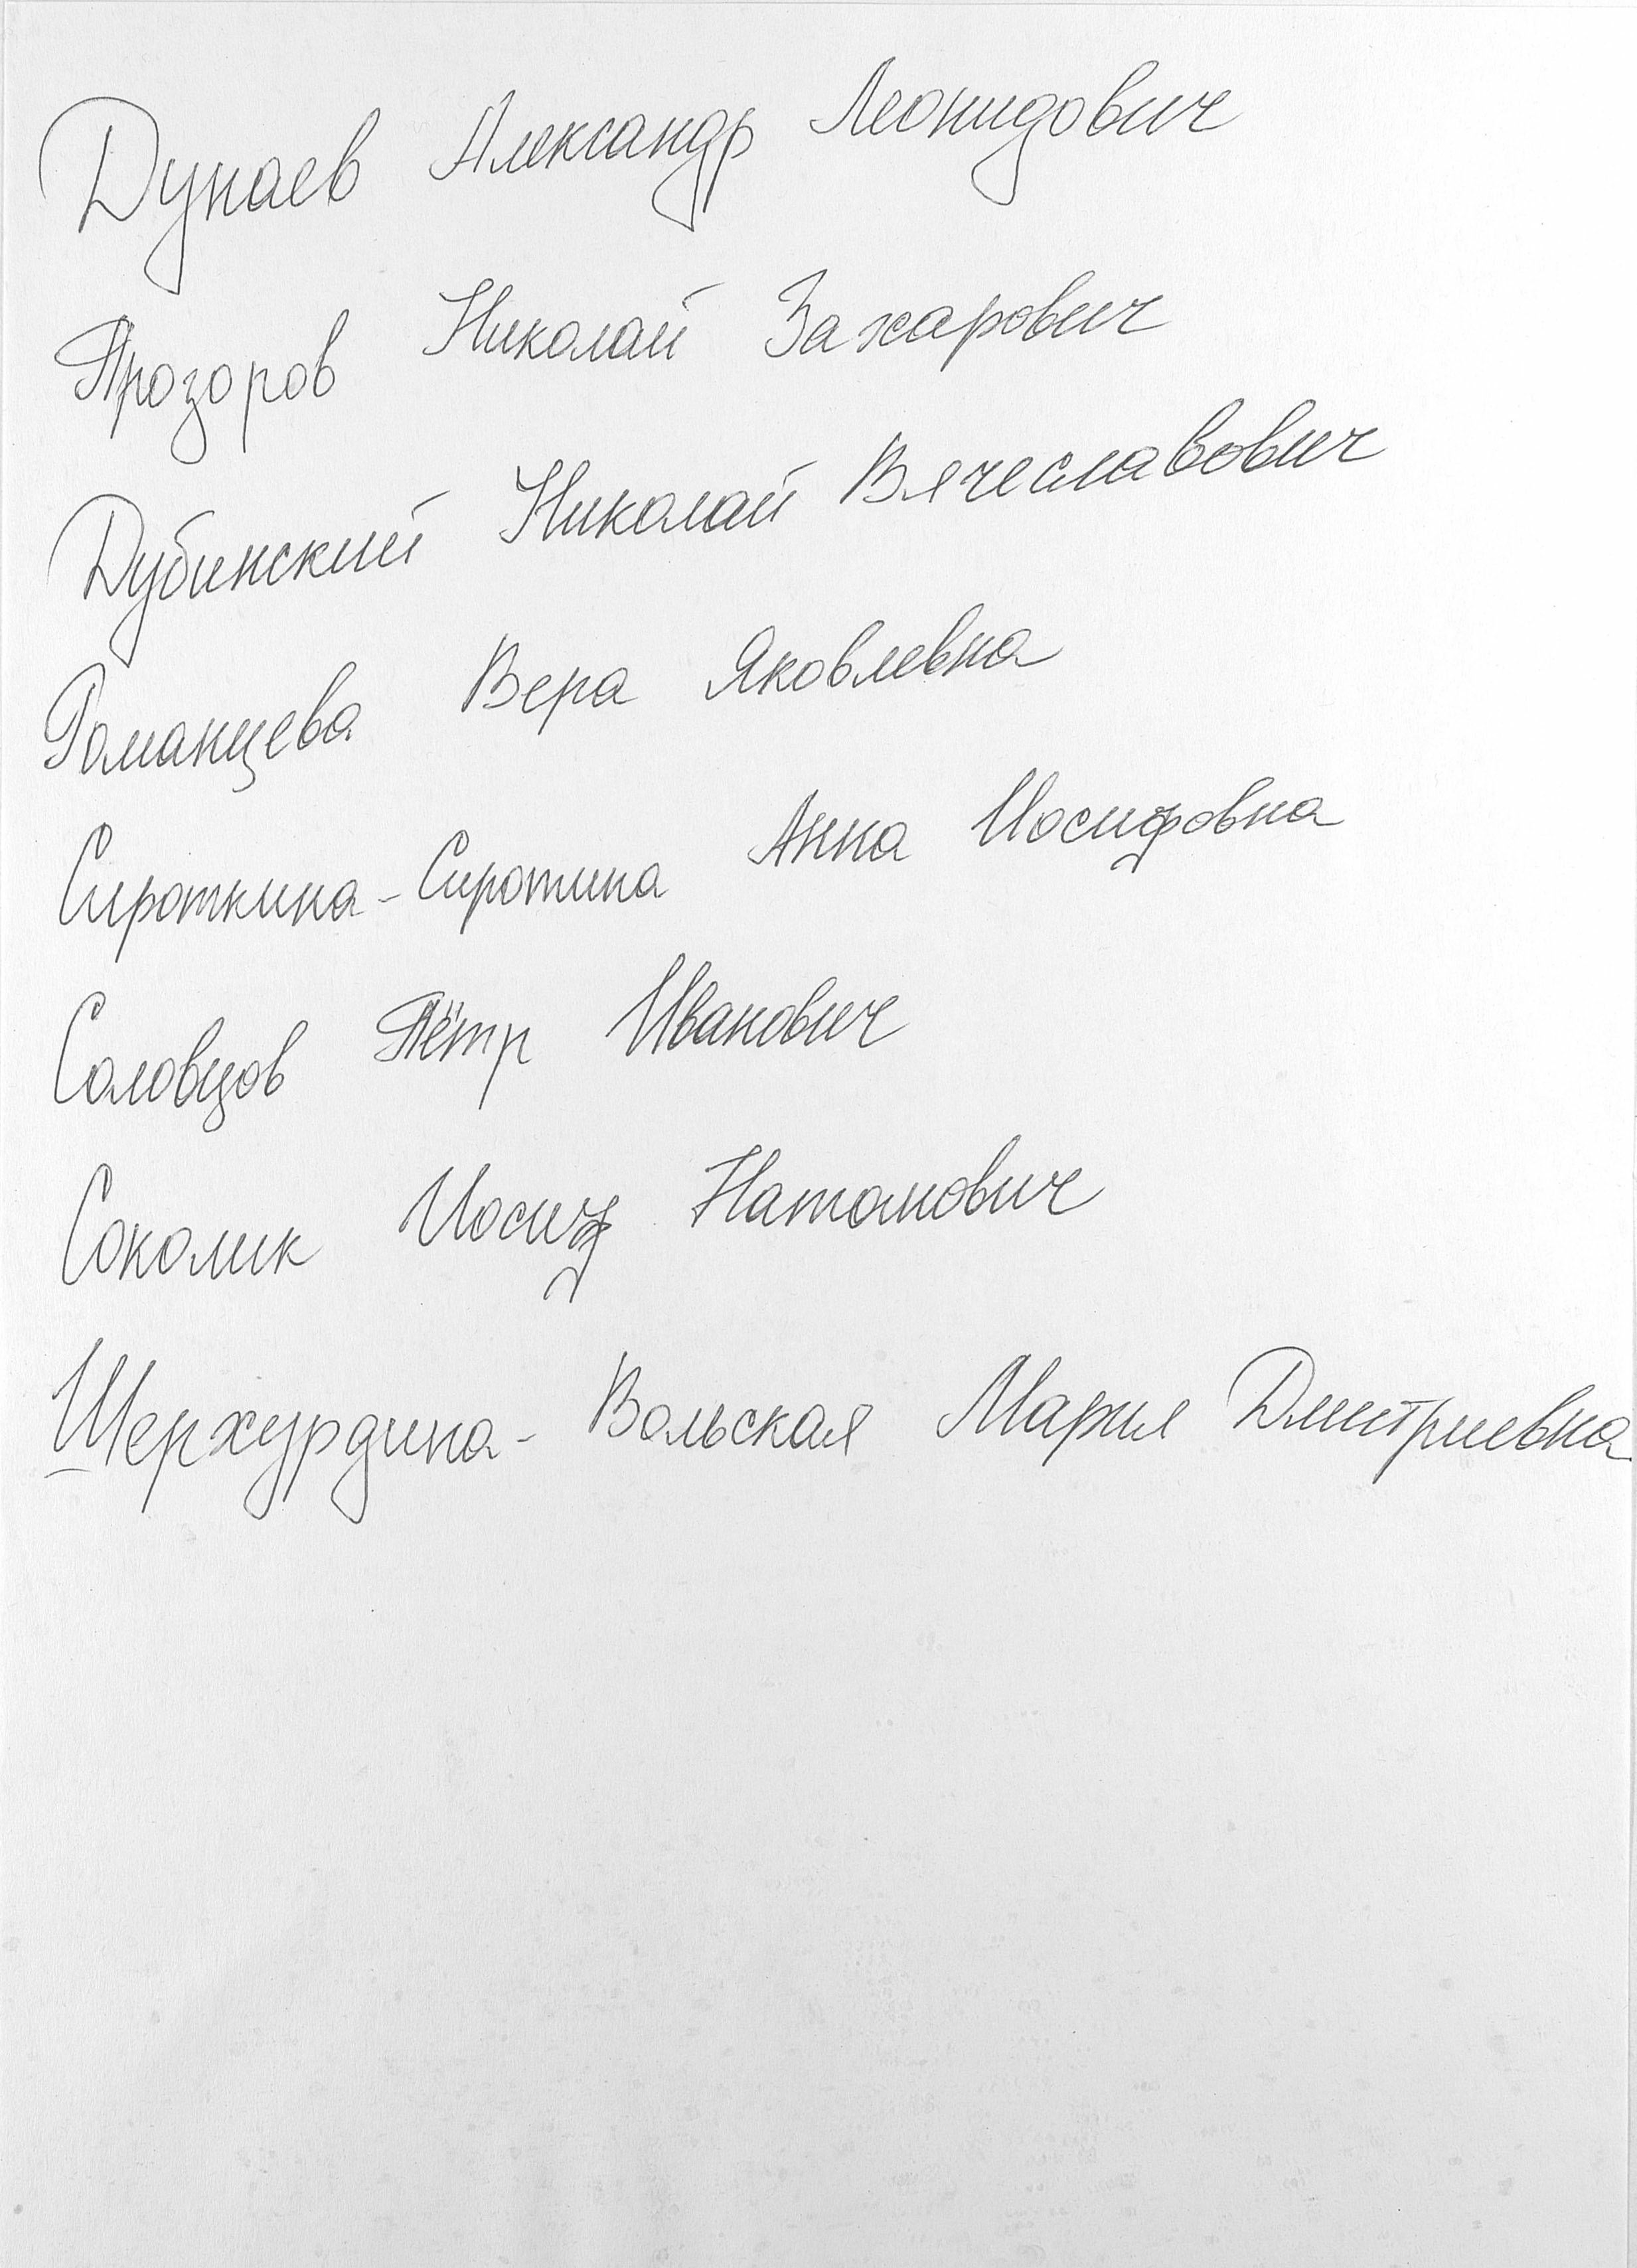 Дунаев Александр Леонидович
Прозоров Николай Захарович
Дубинский Николай Вячеславович
Романцева Вера Яковлевна
Сироткина-Сиротина Анна Иосифовна
Соловцов Пётр Иванович
Соколик Иосиф Натанович
Шерхурдина-Вольская Мария Дмитриевна